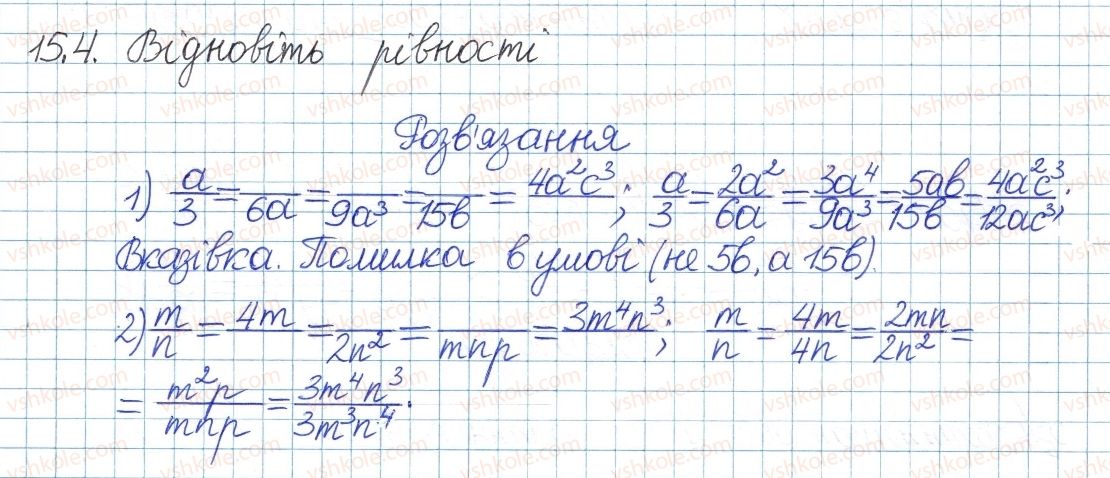 15.4. Відновіть рівності
Розв'язання
1) a/3 = /6a = /9a³ = /15b = 4a²c³/ ; a/3 = 2a²/6a = 3a⁴/9a³ = 5ab/15b = 4a²c³/12ac³ ;
Вказівка. Помилка в умові (не 5b, а 15b).
2) m/n = 4m/ = /2n² = /mnp = 3m⁴n³/ ; m/n = 4m/4n = 2mn/2n² =
= m²p/mnp = 3m⁴n³/3m³n⁴ .